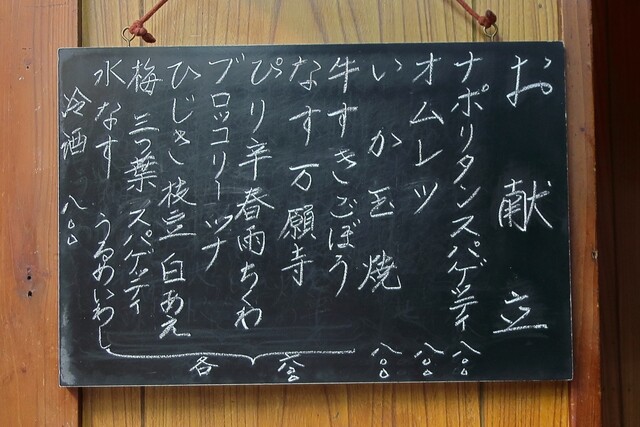 お献立
ナポリタンスパゲッティ 八〇〇
オムレツ 八〇〇
いか玉焼 八〇〇
牛すきごぼう
なす万願寺
ぴり辛春雨ちくわ
ブロッコリーツナ
ひじき枝豆白あえ
梅三つ葉スパゲッティ
水なす うるめいわし
各 六〇〇
冷酒 八〇〇